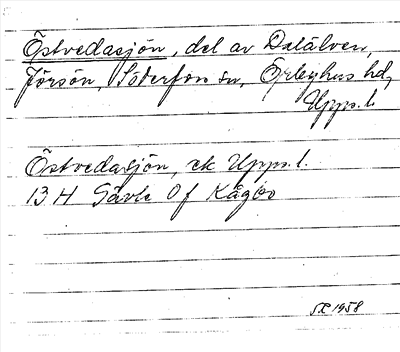 Östvedasjön, del av Dalälven,
Söderfors sn, Örbyhus hd,
Upps.l.
Östvedasjön, ek Upps.l.
13 H Gävle 0 f Kågbo
1958